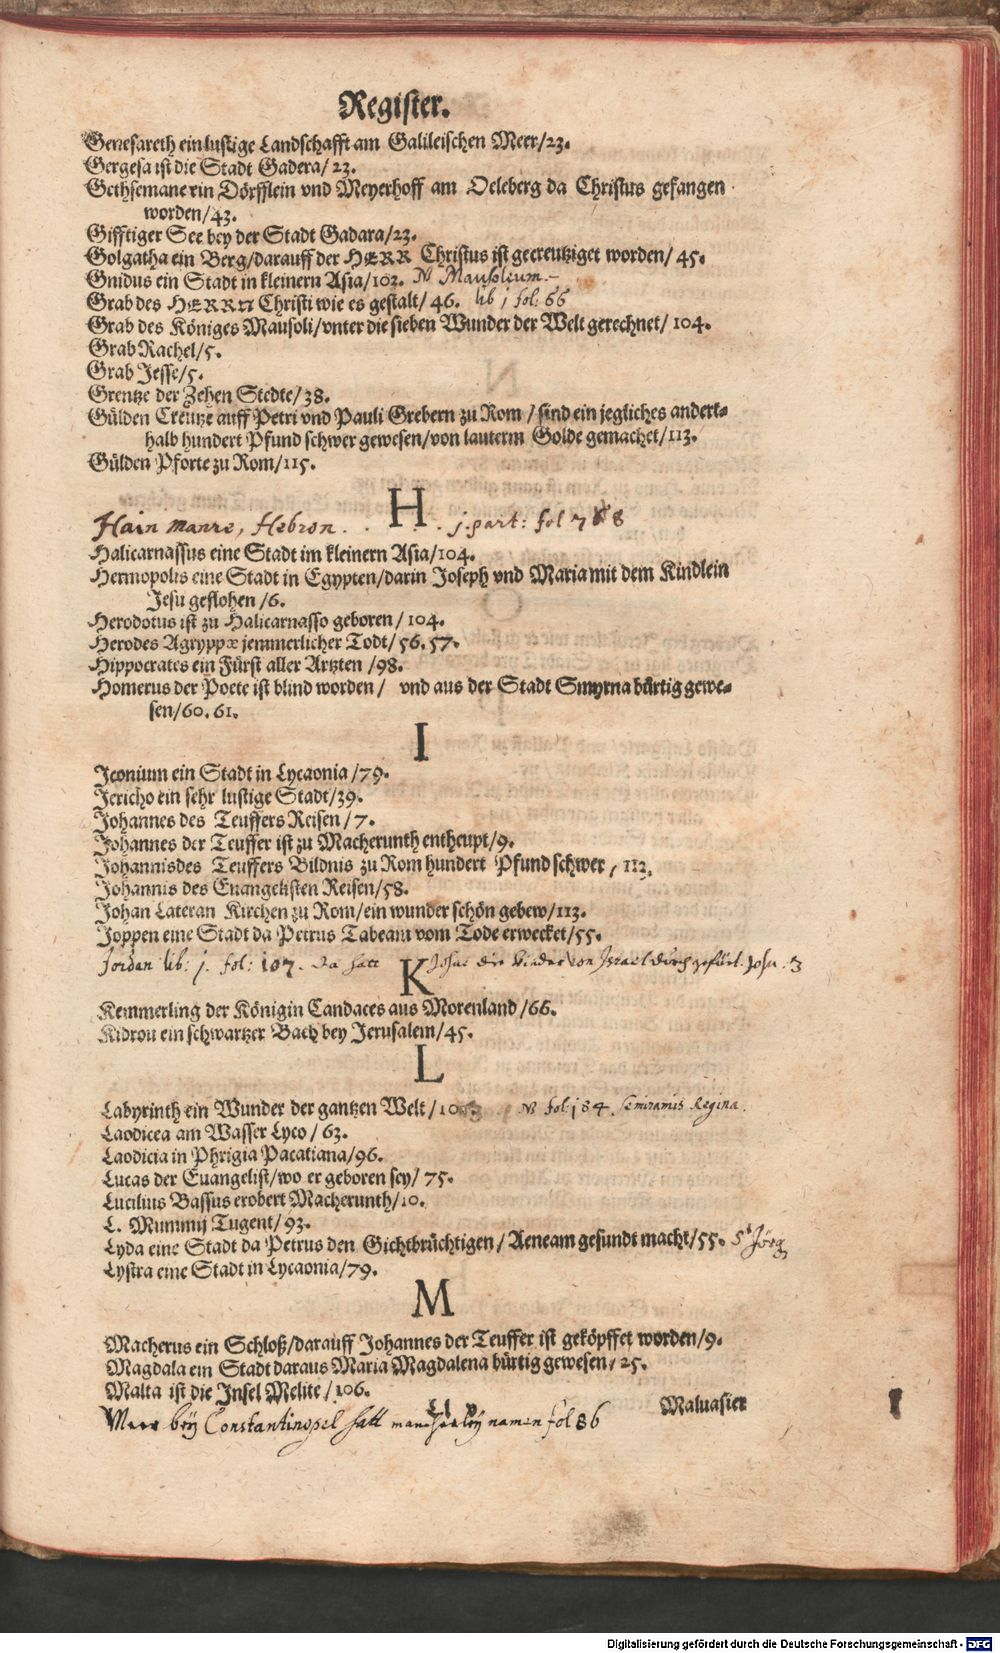 Register.
Genesareth ein lustige Landschafft am Galileischen Meer/23.
Gergesa ist die Stadt Gadera/23.
Gethsemane ein Dörfflein vnd Meyerhoff am Oeleberg da Christus gefangen
worden/43.
Gifftiger See bey der Stadt Gadara/23.
Golgatha ein Berg/darauff der HERR Christus ist gecreutziget worden/45.
Gnidus ein Stadt in kleinern Asia/102. Mausolium.
Grab des HERRN Christi wie es gestalt/46. lib j fol: 66
Grab des Königes Mausoli/vnter die sieben Wunder der Welt gerechnet/104.
Grab Rachel/5.
Grab Jesse/5.
Grentze der Zehen Stedte/38.
Gülden Creutze auff Petri vnd Pauli Grebern zu Rom/sind ein jegliches andert-
halb hundert Pfund schwer gewesen/von lauterm Golde gemachet/113.
Gülden Pforte zu Rom/115.
H
Hain Manre, Hebron. j. part: fol
Halicarnassus eine Stadt im kleinern Asia/104.
Hermopolis eine Stadt in Egypten/darin Joseph vnd Maria mit dem Kindlein
Jesu geflohen/6.
Herodotus ist zu Halicarnasso geboren/104.
Herodes Agryppæ jemmerlicher Todt/56.57.
Hippocrates ein Fürst aller Artzten/98.
Homerus der Poete ist blind worden/ vnd aus der Stadt Smyrna bürtig gewe-
sen/60.61.
I
Iconium ein Stadt in Lycaonia/79.
Jericho ein sehr lustige Stadt/39.
Johannes des Teuffers Reisen/7.
Johannes der Teuffer ist zu Macherunth entheupt/9.
Johannis des Teuffers Bildnis zu Rom hundert Pfund schwer/112.
Johannis des Euangelisten Reisen/58.
Johan Lateran Kirchen zu Rom/ein wunder schön gebew/113.
Joppen eine Stadt da Petrus Tabeam vom Tode erwecket/55.
Jordan lib: j. fol: 107. da hatt Josue die Kinder von Israel durch gefürt. Josu. 3
K
Kemmerling der Königin Candaces aus Morenland/66.
Kidron ein schwartzer Bach bey Jerusalem/45.
L
Labyrinth ein Wunder der gantzen Welt/ fol: 184. Semiramis Regina.
Laodicea am Wasser Lyco/63.
Laodicia in Phrigia Pacatiana/96.
Lucas der Euangelist/wo er geboren sey/75.
Lucilius Bassus erobert Macherunth/10.
L. Mummij Tugent/93.
Lyda eine Stadt da Petrus den Gichtbrüchtigen/Aeneam gesundt macht/55. St Jörg
Lystra eine Stadt in Lycaonia/79.
M
Macherus ein Schloß/darauff Johannes der Teuffer ist geköpffet worden/9.
Magdala ein Stadt daraus Maria Magdalena bürtig gewesen/25.
Malta ist die Insel Melite/106.
Maluasier
Meer bey Constantinopel hatt mancherley namen fol 86
Digitalisierung gefördert durch die Deutsche Forschungsgemeinschaft - DFG